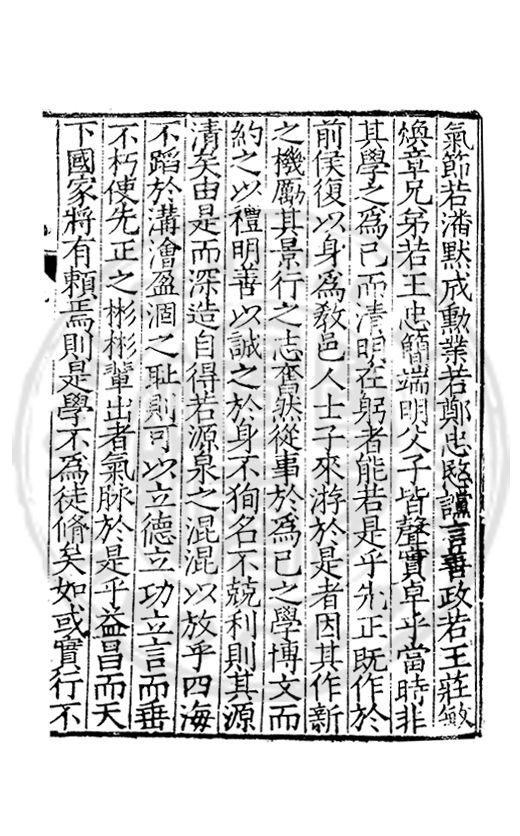 氣節若潘默成勳業若鄭忠愍讜言善政若王莊敏
煥章兄弟若王忠簡端明父子皆聲實卓乎當時非
其學之爲己而清明在躬者能若是乎先正既作於
前侯復以身爲敎邑人士子來游於是者因其作新
之機勵其景行之志奮然從事於爲已之學博文而
約之以禮明善以誠之於身不狥名不兢利則其源
清矣由是而深造自得若源泉之混混以放乎四海
不蹈於溝澮盈涸之耻則可以立德立功立言而垂
不朽使先正之彬彬輩出者氣脉於是乎益昌而天
下國家將有頼焉則是學不爲徒脩矣如或實行不